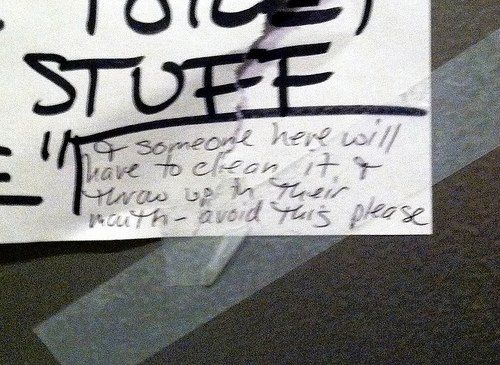 STUFF
"
& someone here will
have to clean it &
throw up in their
mouth - avoid this please